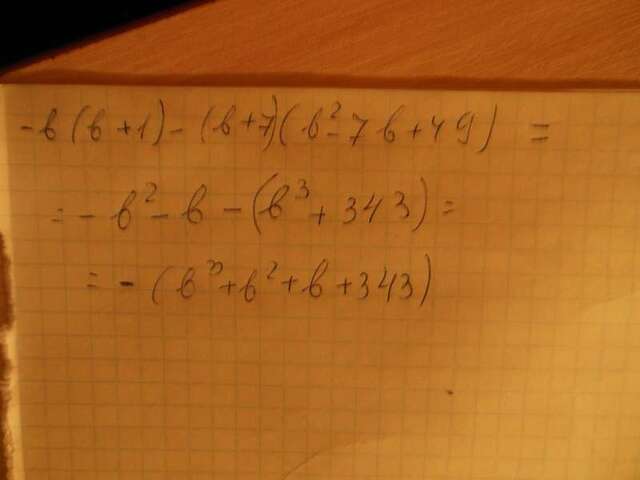 -b(b+1)-(b+7)(b²-7b+49) =
= -b²-b-(b³+343)=
= -(b³+b²+b+343)